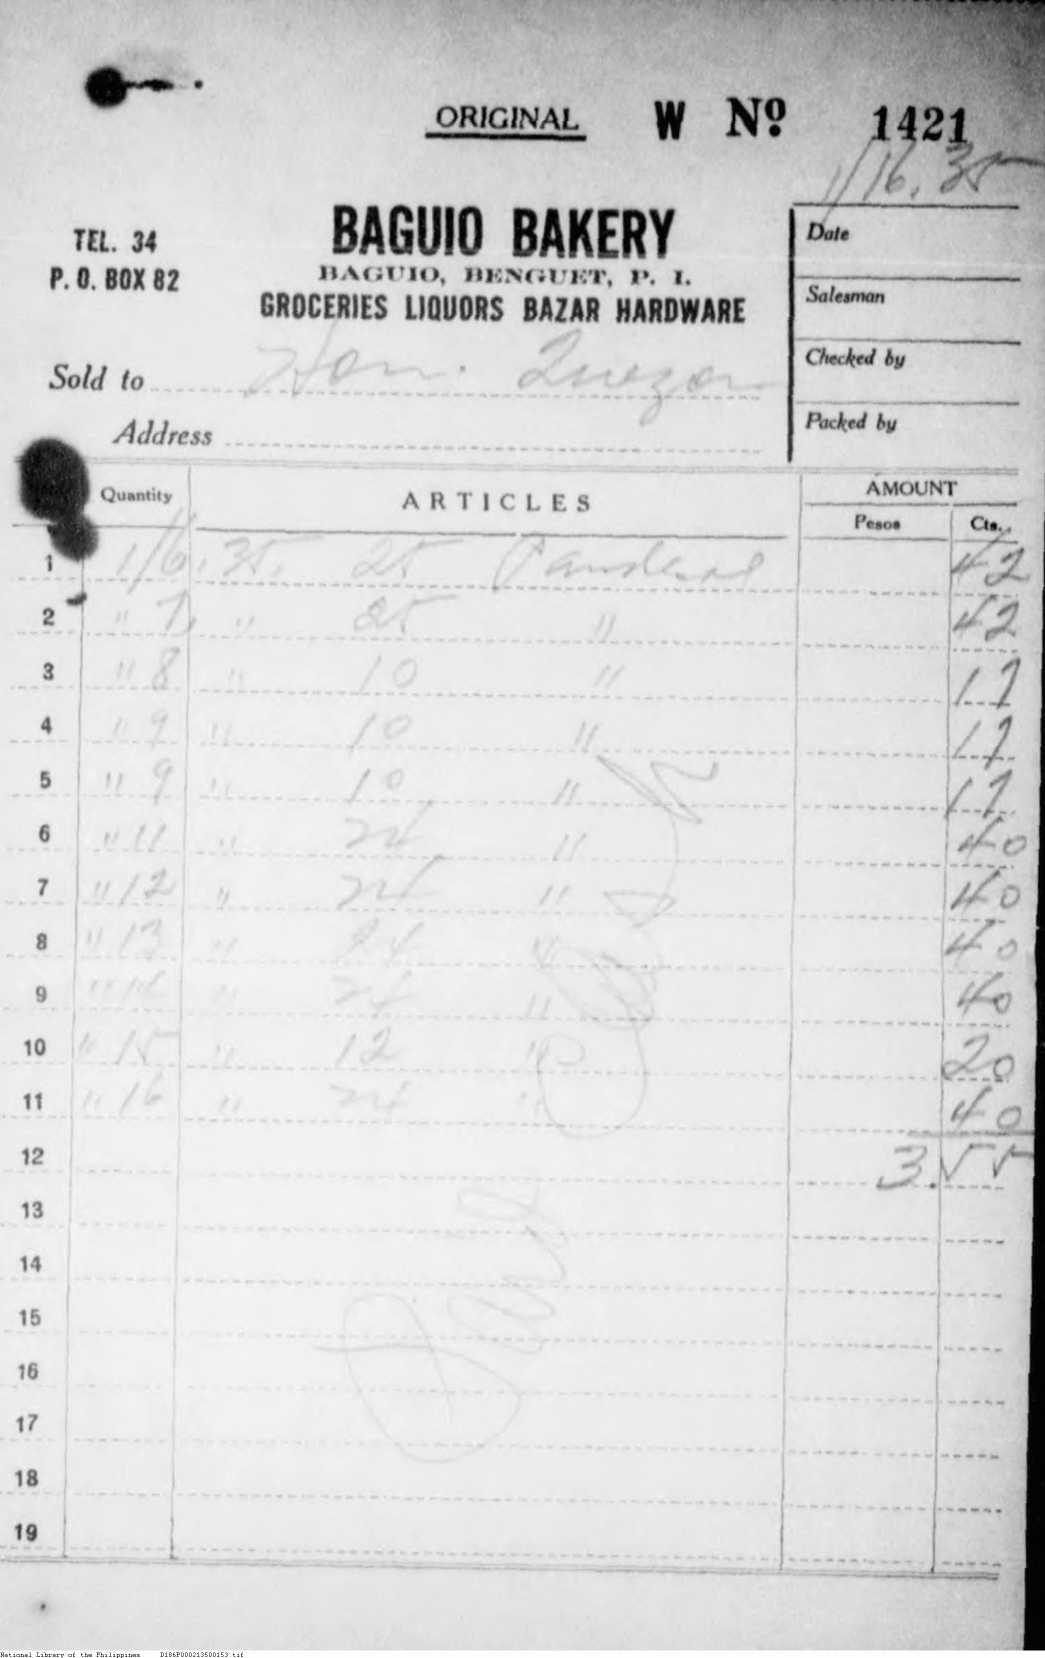 ORIGINAL W Nº 1421
1/16.35
TEL. 34 BAGUIO BAKERY Date
P. O. BOX 82 BAGUIO, BENGUET, P. I. Salesman
GROCERIES LIQUORS BAZAR HARDWARE
Sold to Hon. Quezon Checked by
Address Packed by
Quantity ARTICLES AMOUNT
Pesos Cts.
1 1/6.35. 25 Pandesal 42
2 " 7, " 25 " 42
3 " 8 " 10 " 17
4 " 9 " 10 " 17
5 " 9 " 10 " 17
6 " 11 " 24 " 40
7 " 12 " 24 " 40
8 " 13 " 24 " 40
9 " 14 " 24 " 40
10 " 15 " 12 " 20
11 " 16 " 24 " 40
12 3.55
13
14
15
16
17
18
19
Paid
National Library of the Philippines D186P000213500153.tif